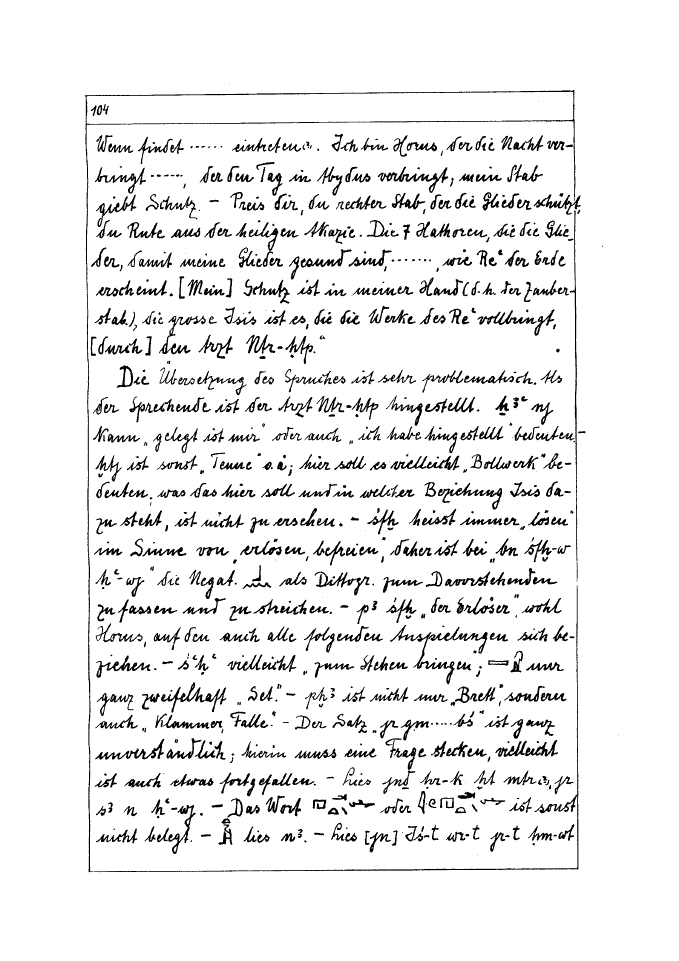 104
Wenn findet ...... eintreten. Ich bin Horus, der die Nacht ver-
bringt ....., der den Tag in Abydus verbringt, mein Stab
giebt Schutz. – Preis dir, du rechter Stab, der die Glieder schützt,
du Rute aus der heiligen Akazie. Die 7 Hathoren, die die Glie-
der, damit meine Glieder gesund sind, ......., wie Reꜥ der Erde
erscheint. [Mein] Schutz ist in meiner Hand (d.h. der Zauber-
stab), die grosse Isis ist es, die die Werke des Reꜥ vollbringt,
[durch] den Arzt Nfr-ḥtp."
Die Übersetzung des Spruches ist sehr problematisch. Als
der Sprechende ist der Arzt Nfr-ḥtp hingestellt. ḫꜣꜥ nj
kann „gelegt ist mir" oder auch „ich habe hingestellt" bedeuten –
ḫtj ist sonst „Tenne" o.ä.; hier soll es vielleicht „Bollwerk" be-
deuten; was das hier soll und in welcher Beziehung Isis da-
zu steht, ist nicht zu ersehen. – śfḫ heisst immer „lösen"
im Sinne von „erlösen, befreien", daher ist bei „bn śfḫ-w
ḥꜥ-wj" die Negat. als Dittogr. zum Davorstehenden
zu fassen und zu streichen. – pꜣ śfḫ „der Erlöser", wohl
Horus, auf den auch alle folgenden Anspielungen sich be-
ziehen. – śꜥḥꜥ vielleicht „zum Stehen bringen"; nur
ganz zweifelhaft „Set." – pḫꜣ ist nicht nur „Brett", sondern
auch „Klammer, Falle." – Der Satz „jr gm.....bś" ist ganz
unverständlich; hierin muss eine Frage stecken, vielleicht
ist auch etwas fortgefallen. – Lies jnḏ ḥr-k ḫt mtr, jr
sꜣ n ḥꜥ-wj. – Das Wort oder ist sonst
nicht belegt. – lies nꜣ. – Lies [jn] Iś-t wr-t jr-t ḥm-wt